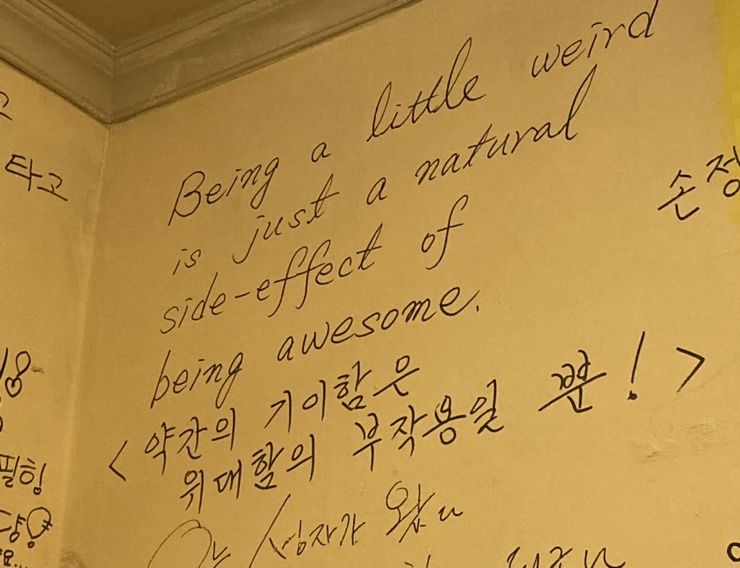 Being a little weird
is just a natural
side-effect of
being awesome.
<약간의 기이함은
위대함의 부작용일 뿐!>
타고
손정
필힝
왔